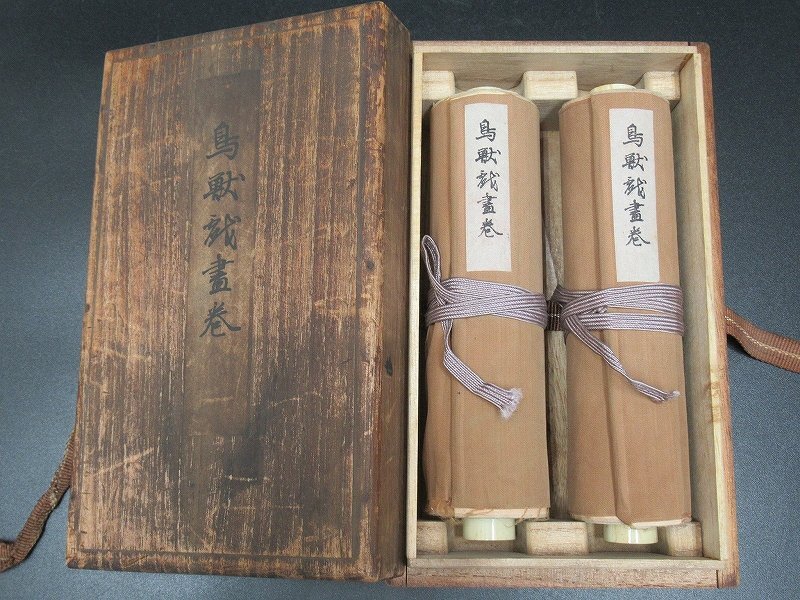 鳥獣戯畫巻
鳥獣戯畫巻
鳥獣戯畫巻